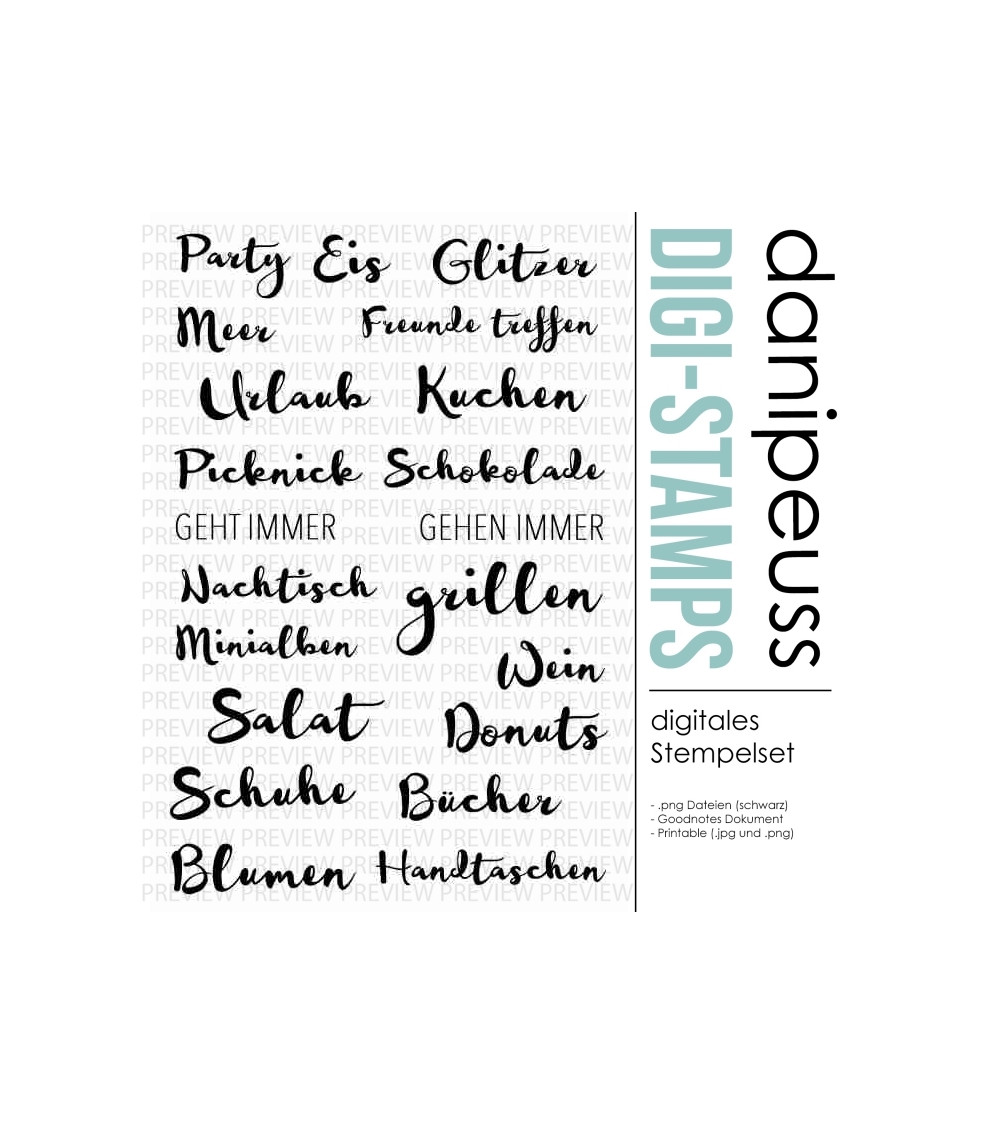 PREVIEW PREVIEW PREVIEW PREVIEW PREVIEW
Party Eis Glitzer
Meer Freunde treffen
Urlaub Kuchen
Picknick Schokolade
GEHT IMMER GEHEN IMMER
Nachtisch grillen
Minialben
Wein
Salat
Donuts
Schuhe Bücher
Blumen Handtaschen
DIGI-STAMPS
danipeuss
digitales
Stempelset
- .png Dateien (schwarz)
- Goodnotes Dokument
- Printable (.jpg und .png)